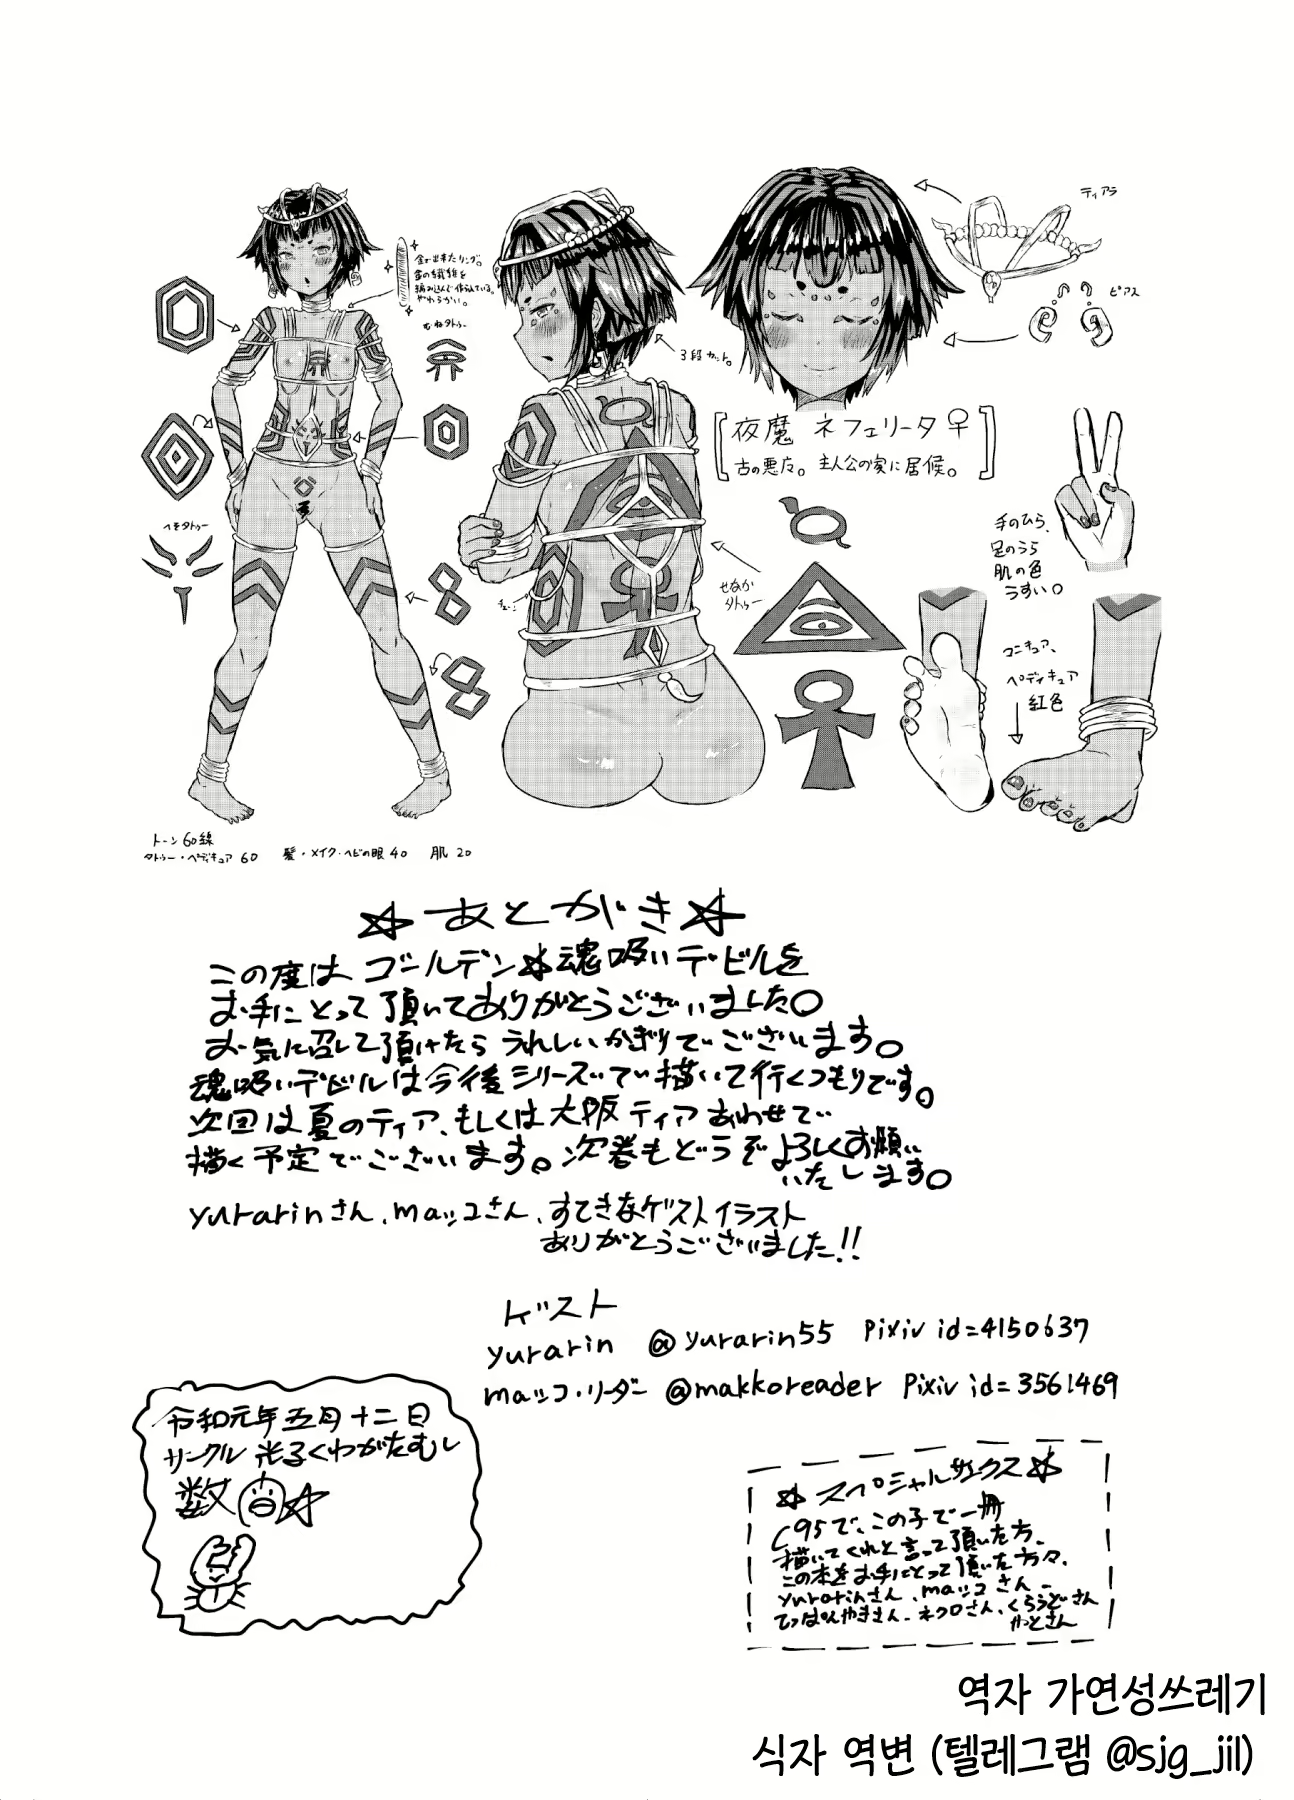 ティアラ
金で出来たリング。
金の繊維を
編み込んで作られている。
やわらかい。
ピアス
むねタトゥー
3段カット。
[夜魔 ネフェリータ♀
古の悪広。主人公の家に居候。]
手のひら、
足のうら
肌の色
うすい。
へそタトゥー
せなか
タトゥー
チェーン
マニキュア、
ペディキュア
紅色
トーン60線
タトゥー・ペディキュア 60 髪・メイク・ヘビの眼 40 肌 20
☆あとがき☆
この度はゴールデン☆魂吸いデビルを
お手にとって頂いてありがとうございました。
お気に召して頂けたらうれしいかぎりでございます。
魂吸いデビルは今後シリーズで描いて行くつもりです。
次回は夏のティア、もしくは大阪ティアあわせで
描く予定でございます。次巻もどうぞよろしくお願い
いたします。
yurarinさん、maッコさん、すてきなゲストイラスト
ありがとうございました!!
ゲスト
yurarin @yurarin55 Pixiv id=4150637
maッコ・リーダー @makkoreader Pixiv id=3561469
令和元年五月十二日
サークル 光るくわがたむし
数
☆スペシャルサンクス☆
C95で、この子で一冊
描いてくれと言って頂いた方、
この本をお手にとって頂いた方々、
yurarinさん、maッコさん、
てっぱんやきさん、ネクロさん、くらうどさん
やとさん
역자 가연성쓰레기
식자 역변 (텔레그램 @sjg_jil)